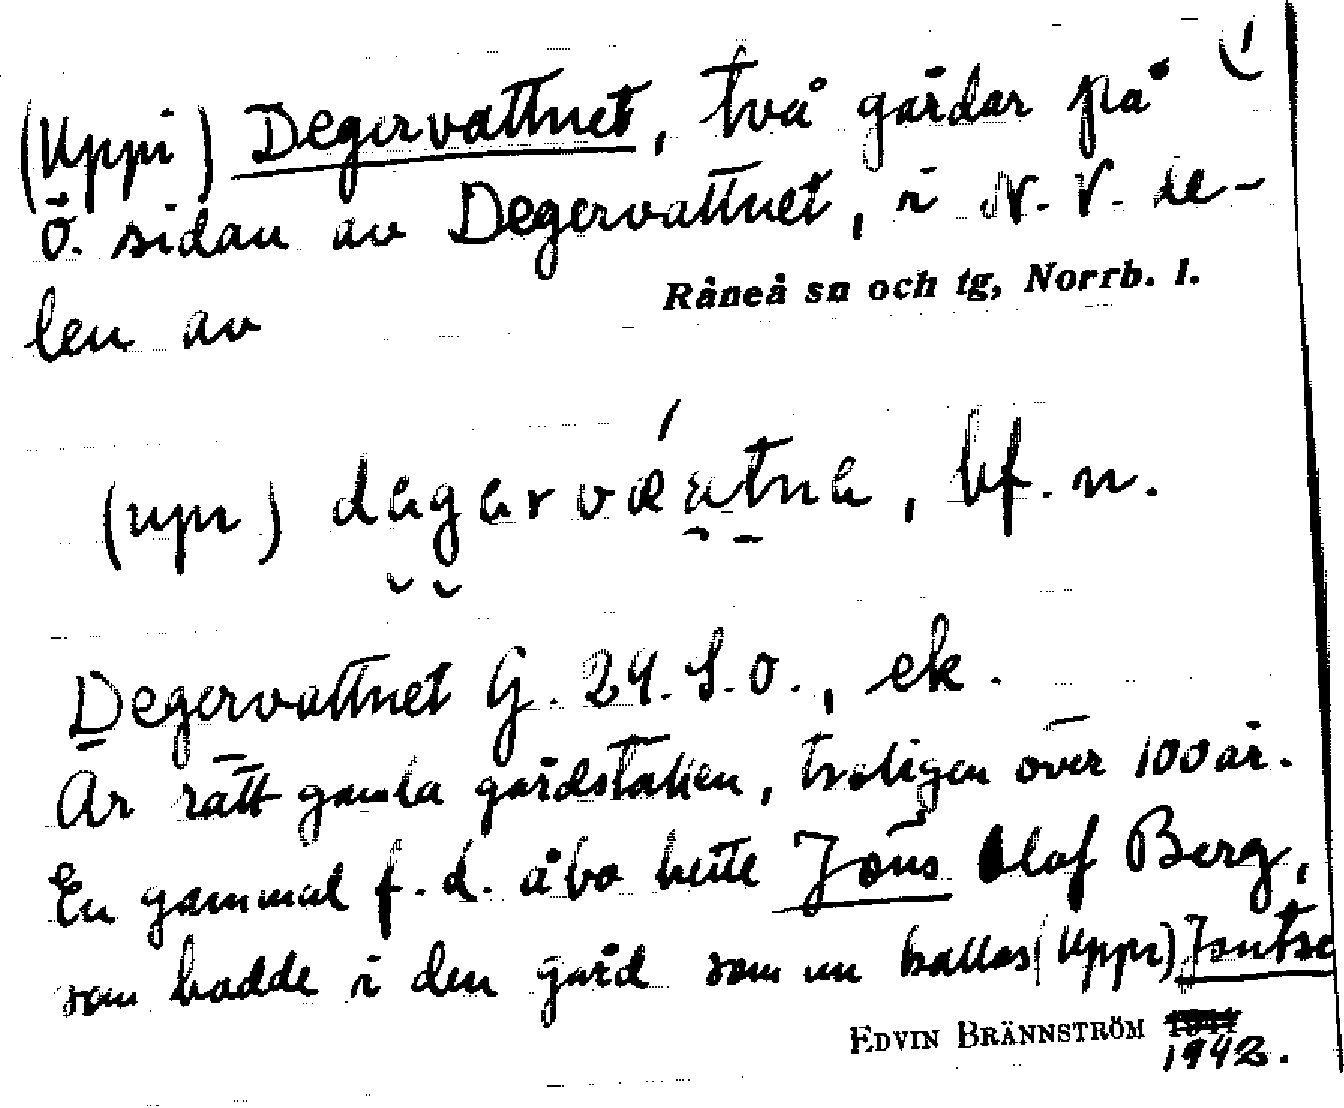 (Uppi) Degervattnet, två gårdar på
Ö. sidan av Degervattnet, i N.V. de-
len av Råneå sn och tg, Norrb. l.
(upı) , bf. n.
Degervattnet G. 24. S.O., ek.
Är rätt gamla gårdställen, troligen över 100 år.
En gammal f.d. åbo hette Jöns Olof Berg,
som bodde i den gård som nu kallas (Uppi)
EDVIN BRÄNNSTRÖM 1942.